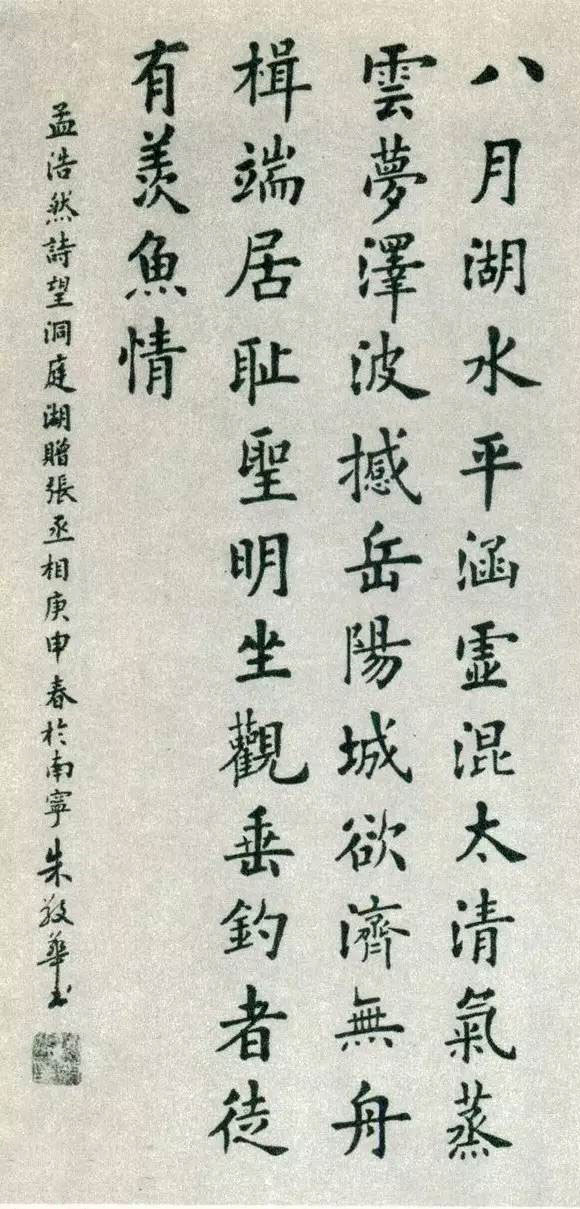 八月湖水平涵虚混太清氣蒸
雲夢澤波撼岳陽城欲濟無舟
楫端居耻聖明坐觀垂釣者徒
有羨魚情
孟浩然詩望洞庭湖贈張丞相庚申春於南寧朱敬華书